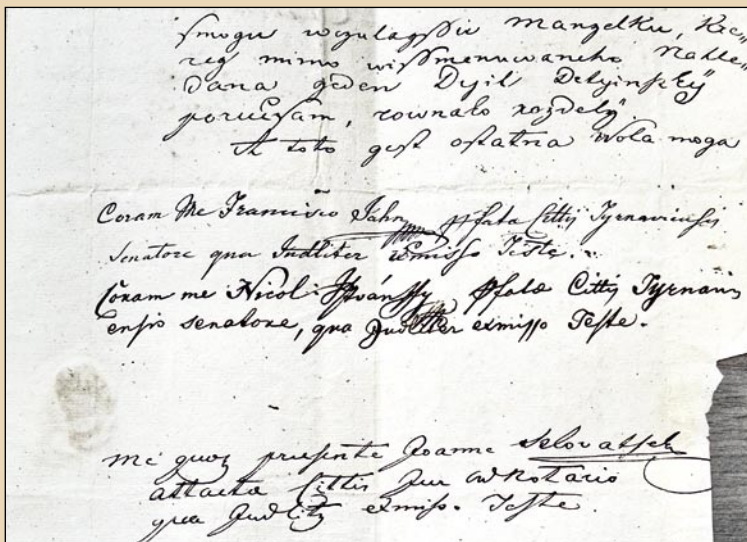 smogu wlagssu Manzelku, kte„
reg mimo wissmenuwaneho nahle„
dana geden Dyil Detyinský
poručam, rownako rozdely.
A toto gest ostatna Wola moga
Coram Me Francisco Jahn pffata Cittis Tyrnaviensis
Senatore qua Judliter Exmisso Teste.
Coram me Nicol: Istvánffy Pffatae Cittis Tyrnavi
ensis senatore, qua Judliter exmisso Teste.
Me quoq presente Joanne Selovatsek
attactae Cittis Jur. Notario
qua Judlitr exmisso. Teste.